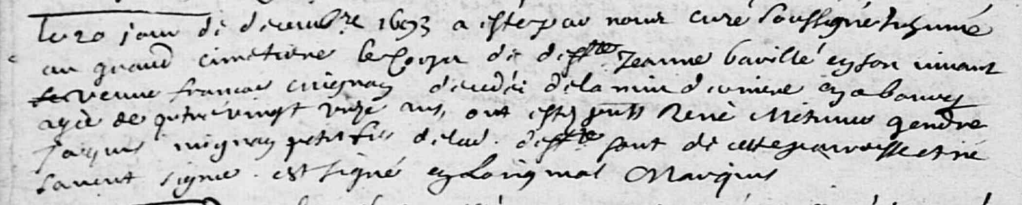 Le 20 jour de decembre 1693 a esté par nous curé soussigné inhumé
au grand cimetiere le corps de deffte Jeanne bavillé en son vivant
veuve francois mignay decedée de la nuit derniere
agée de quatre vingt onze ans, ont esté pnts René Metivier gendre
Jaques mignay petit fils de lad. deffte sont de cette parroisse et ne
scavent signer. est signé en Loriginal Marquis